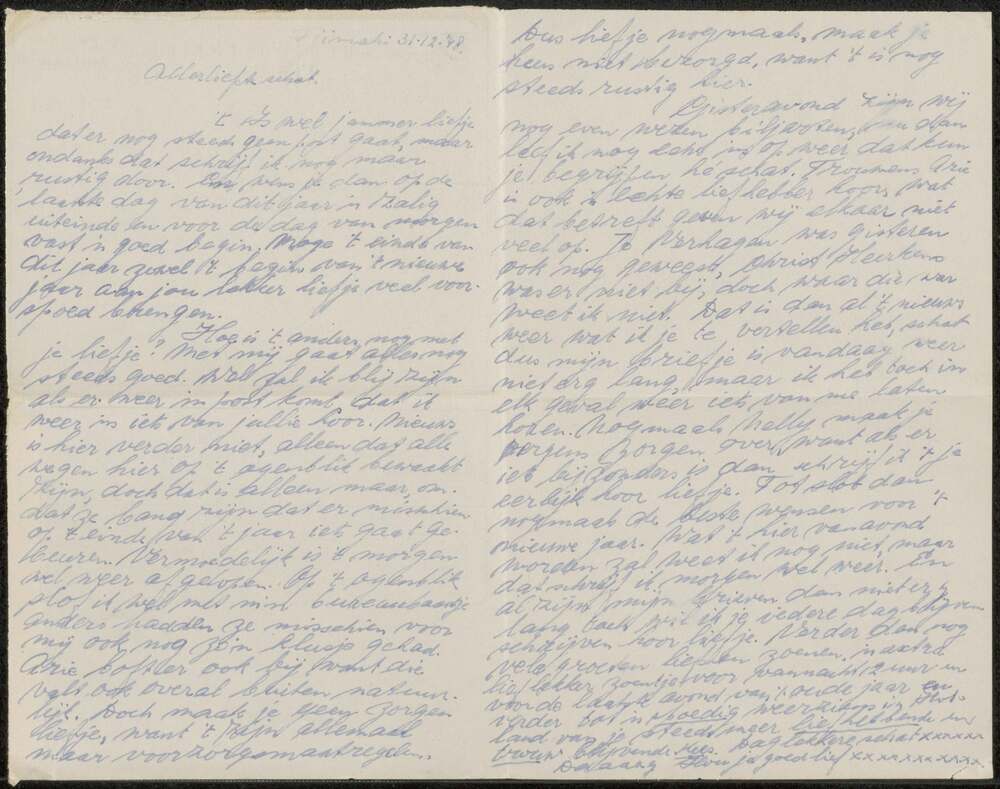 Tjimahi 31-12-'48
Allerliefste schat.
't Is wel jammer liefje
dat er nog steeds geen post gaat, maar
ondanks dat schrijf ik nog maar
rustig door. En wens je dan op de
laatste dag van dit jaar 'n zalig
uiteinde en voor de dag van morgen
vast 'n goed begin. Moge 't einde van
dit jaar zowel 't begin van 't nieuwe
jaar aan jou lekker liefje veel voor-
spoed brengen.
Hoe is 't anders nog met
je liefje? Met mij gaat alles nog
steeds goed. Wel zal ik blij zijn
als er weer 'ns post komt, dat ik
weer 'ns iets van jullie hoor. Nieuws
is hier verder niet, alleen dat alle
wegen hier op 't ogenblik bewaakt
zijn, doch dat is alleen maar, om-
dat ze bang zijn dat er misschien
op 't einde van 't jaar iets gaat ge-
beuren. Vermoedelijk is 't morgen
wel weer afgelopen. Op 't ogenblik
plof ik wel met m'n bureaubaantje
anders hadden ze misschien voor
mij ook nog zo'n klusje gehad.
Arie boft er ook bij want die
valt ook overal buiten natuur-
lijk. Doch maak je geen zorgen
liefje, want 't zijn allemaal
maar voorzorgsmaatregelen.
Dus liefje nogmaals, maak je
heus niet bezorgd, want 't is nog
steeds rustig hier.
Gisteravond zijn wij
nog even wezen biljarten, nu dan
leef ik nog echt 'ns op weer dat kun
je begrijpen hé schat. Trouwens Arie
is ook 'n echte liefhebber hoor, wat
dat betreft geven wij elkaar niet
veel op. Je Verhagen was gisteren
ook nog geweest, Christ Heerkens
was er niet bij, doch waar die was
weet ik niet. Dat is dan al 't nieuws
weer wat ik je te vertellen heb, schat
dus mijn briefje is vandaag weer
niet erg lang, maar ik heb toch in
elk geval weer iets van me laten
horen. Nogmaals Nelly maak je
nergens zorgen over, want als er
iets bijzonders is dan schrijf ik 't je
eerlijk hoor liefje. Tot slot dan
nogmaals de beste wensen voor 't
nieuwe jaar. Wat 't hier vanavond
worden zal weet ik nog niet, maar
dat schrijf ik morgen wel weer. En
al zijn mijn brieven dan niet erg
lang toch wil ik je iedere dag blijven
schrijven hoor liefje. Verder dan nog
vele groeten liefsen zoenen, 'n extra
lief lekker zoentje voor vannacht 2 uur en
voor de laatste avond van 't oude jaar en
verder tot 'n spoedig weerzien in Hol-
land van je steeds meer liefhebbende en
trouw blijvende Kees. Dag lekkere schat xxxxxxx
Daaaag Hou je goed lief xxxxxxxxxx